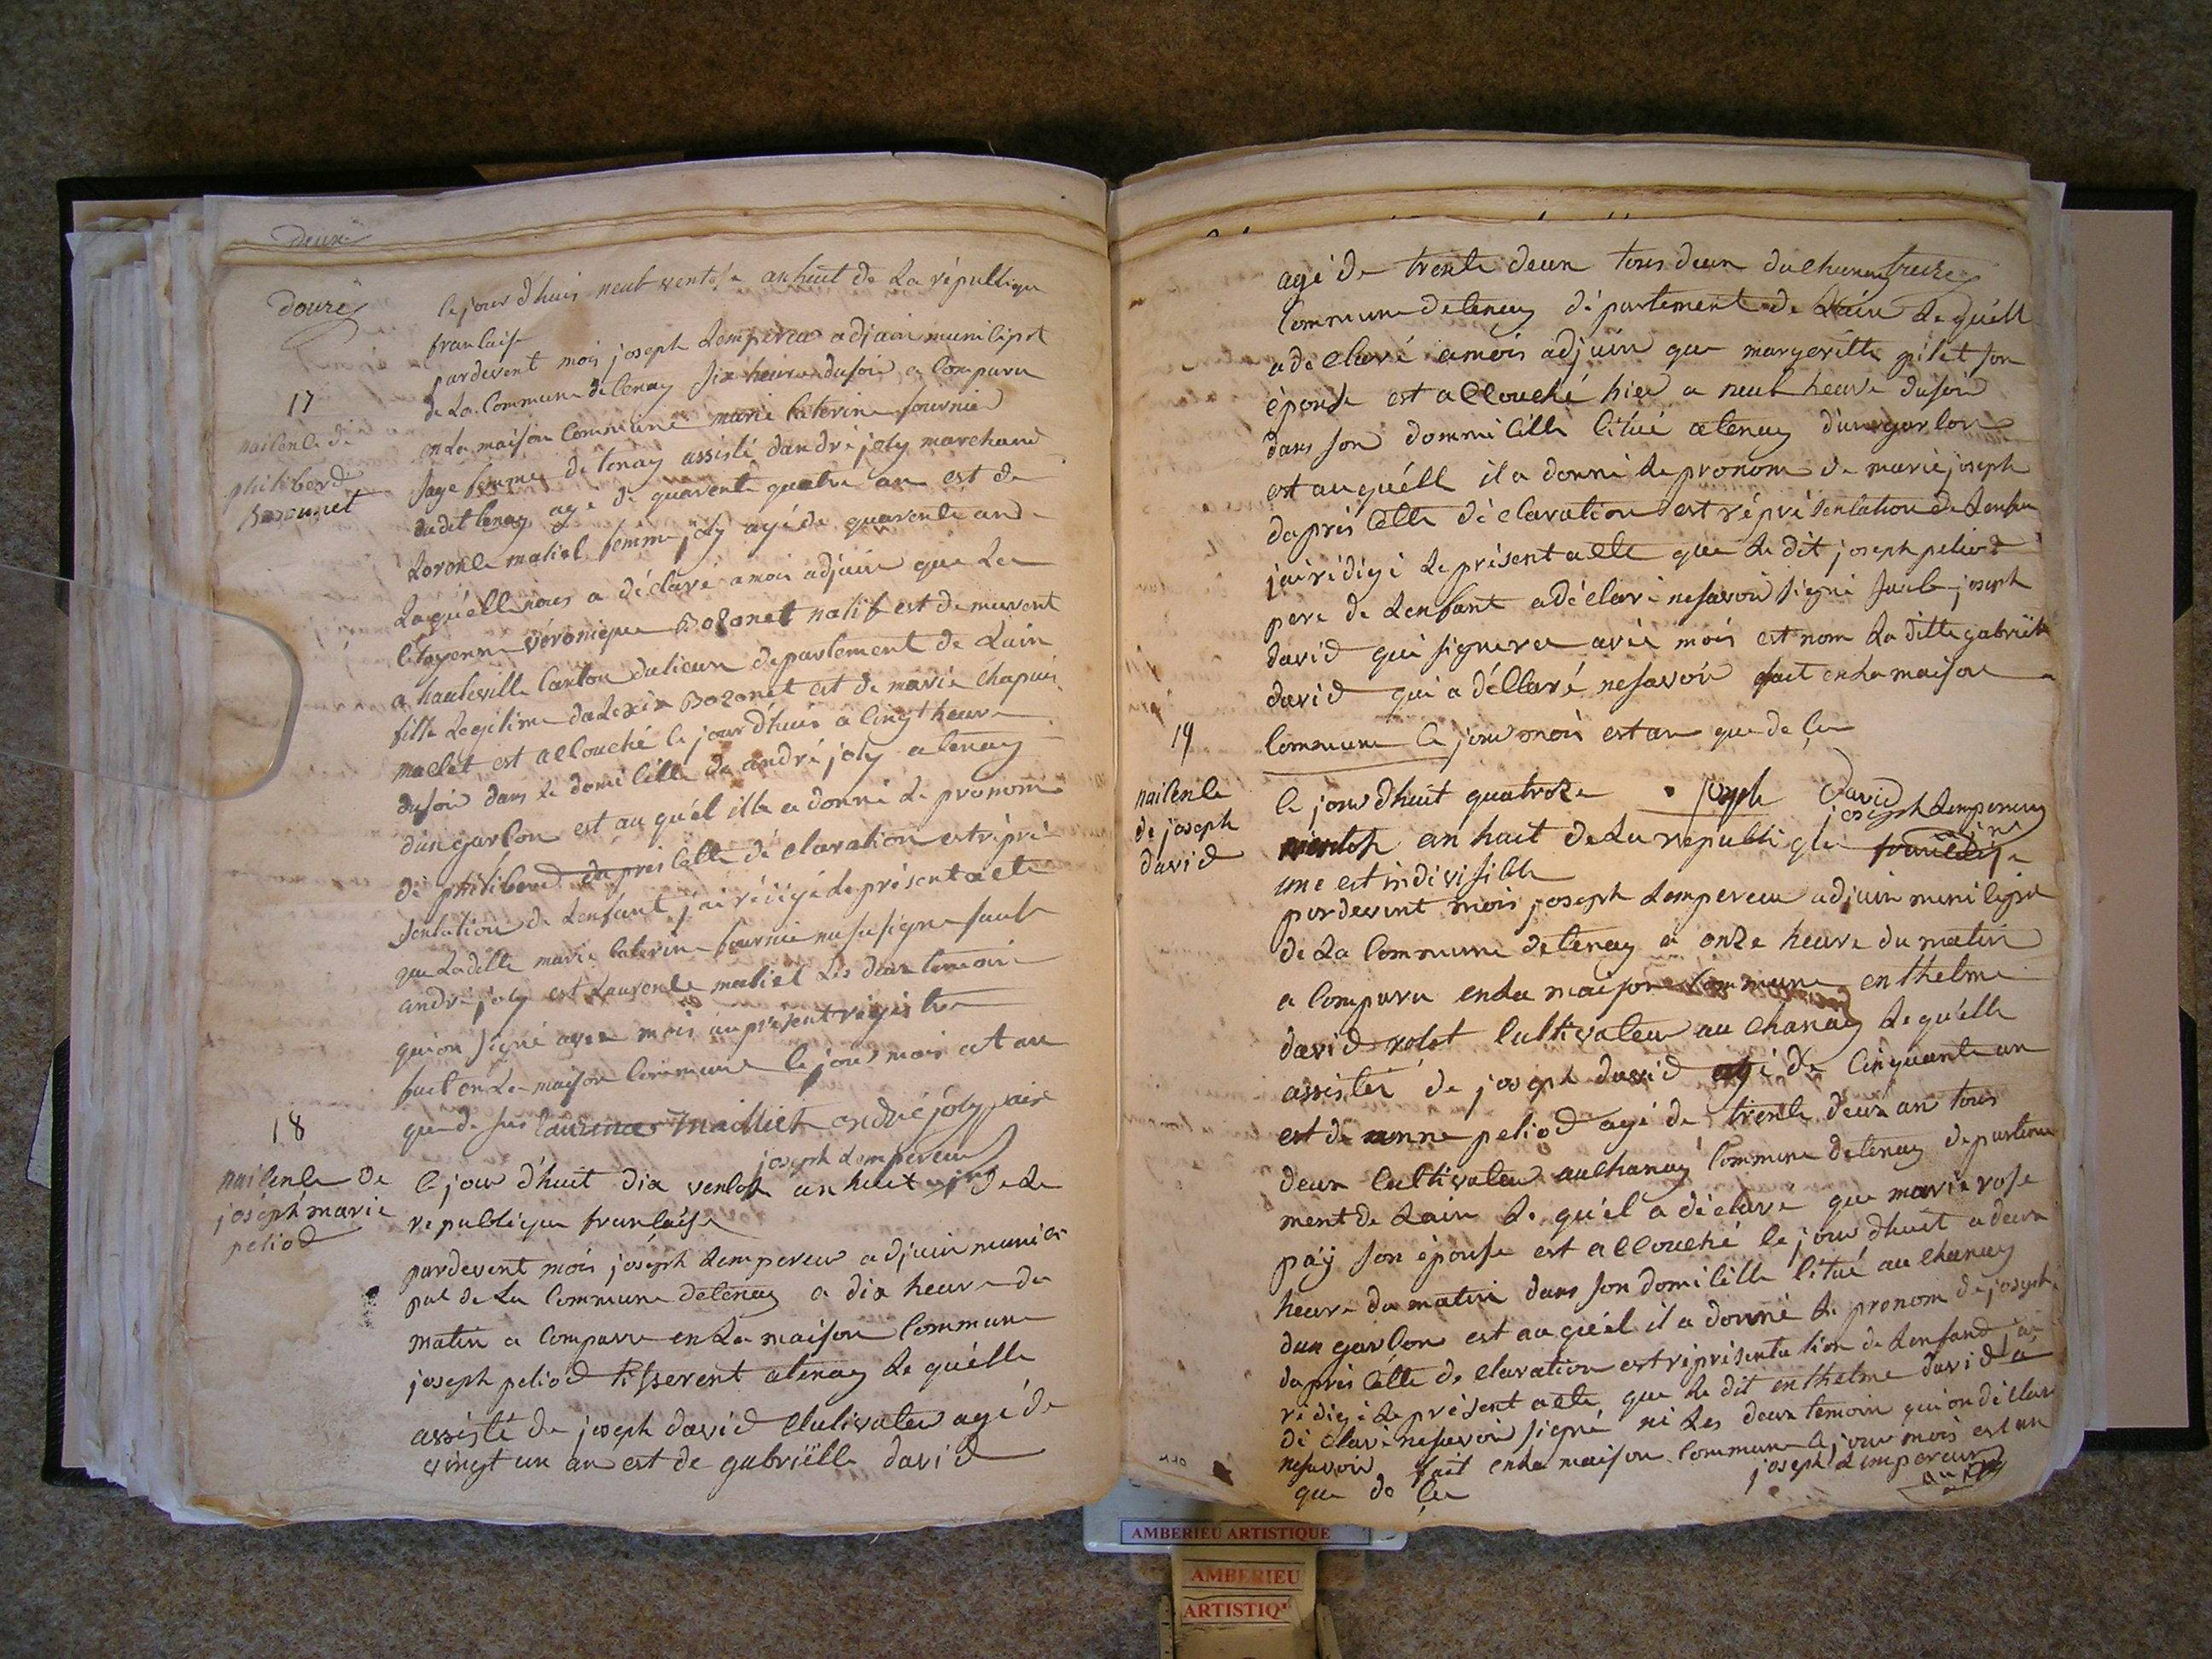 deux
douze
ce jour d'huis neuf ventose an huit de La républiqu
francaise
pardevent mois joseph Lempereur adjoin municipal
17
de La Commune de tenay six heure du soir a Comparu
en La maison Commune marie Caterine fournier
naicence de
philiberd
Bozonnet
sage femme de tenay assisté dandré joly marchand
dudet tenay agé de quarente quatre an est de
Lorence maliet femme joly agé de quarente and
Laquélle nous a déclaré a mois adjoin que La
Citoyenne véronique Bozonet natif est demeurent
a hauteville Canton du lieu departement de Lain
fille Legitime daLexis Bozonet est de marie Chapuis
maclet est accouché ce jourd'huis a cinqt heure
dusoir dans le domicille de andré joly a tenay
dun garcon est au quél ille a donné Le pronom
de philiberd dapres cette déclaration est répré
sentation de Lenfant j'ai rédigé Le présent acte
que La ditte marie Caterine fournie na su signe saufe
andré joly est Laurence maliet Les deux temoin
quion signé avec mois au present registre
fait en La maison Commune le jour mois et an
que de sus laurence Malliet andré joly pair
joseph Lempereur
18
naicence de
joséph marie
peliod
ce jour d'huit dix ventose an huit de La
republique francaise
pardevent mois joséph Lempereur adjoin munici
pal de La Commune de tenay a dix heure du
matin a Comparu en La maison Commune
joseph peliod tisserent a tenay Le quélle
assisté de joseph david Cultivateur agé de
vingt un an est de gabriëlle david
agé de trente deux tous deux du chanay
treize
Commune de tenay département de Lain Le quéll
a déclaré a mois adjoin que margeritte pilet son
épouse est accouché hier a neuf heure dusoir
dans son dommicille citué a tenay dun garcon
est au quéll il a donné Le pronom de marie joseph
dapres cette déclaration est réprésentation de Lenfan
jai rédigé Le présent acte que Le dit joseph peliod
pere de Lenfant a déclaré ne savoir signé saufe joseph
david qui signera avec mois est nom La ditte gabriëlle
david qui a déllaré ne savoir fait en La maison
Commune Ce jour mois est an que de çu
19
naicence
de joseph
david
joseph David
joseph Lempereur
ce jour d'huit quatroze
ventose an huit de La republique francaise
une est indivisible
pardevent mois joseph Lempereur adjoin municipal
de La Commune de tenay a onze heure du matin
a Comparu en La maison Commune enthelme
david rolet Cultivateur au Chanay Le quélle
assisté de joseph david agé de Cinquante an
est de anne peliod agé de trente deux an tous
deux Cultivateur au chanay Commune de tenay departe
ment de Lain Le quél a déclaré que marie rose
pay son épouse est accouché le jour dhuit a deux
heure du matin dans son domicille citué au chanay
dun garcon est au quél il a donné Le pronom de joseph
dapres cette déclaration est réprésentation de Lenfand jai
rédigé Le présent acte que Le dit enthelme david a
déclaré ne savoir signé ni Les deux temoin qui on déclar
ne savoir fait en La maison Commune Ce jour mois est an
que de çu
joseph Lempereur
AMBERIEU ARTISTIQUE
AMBERIEU
ARTISTIQ